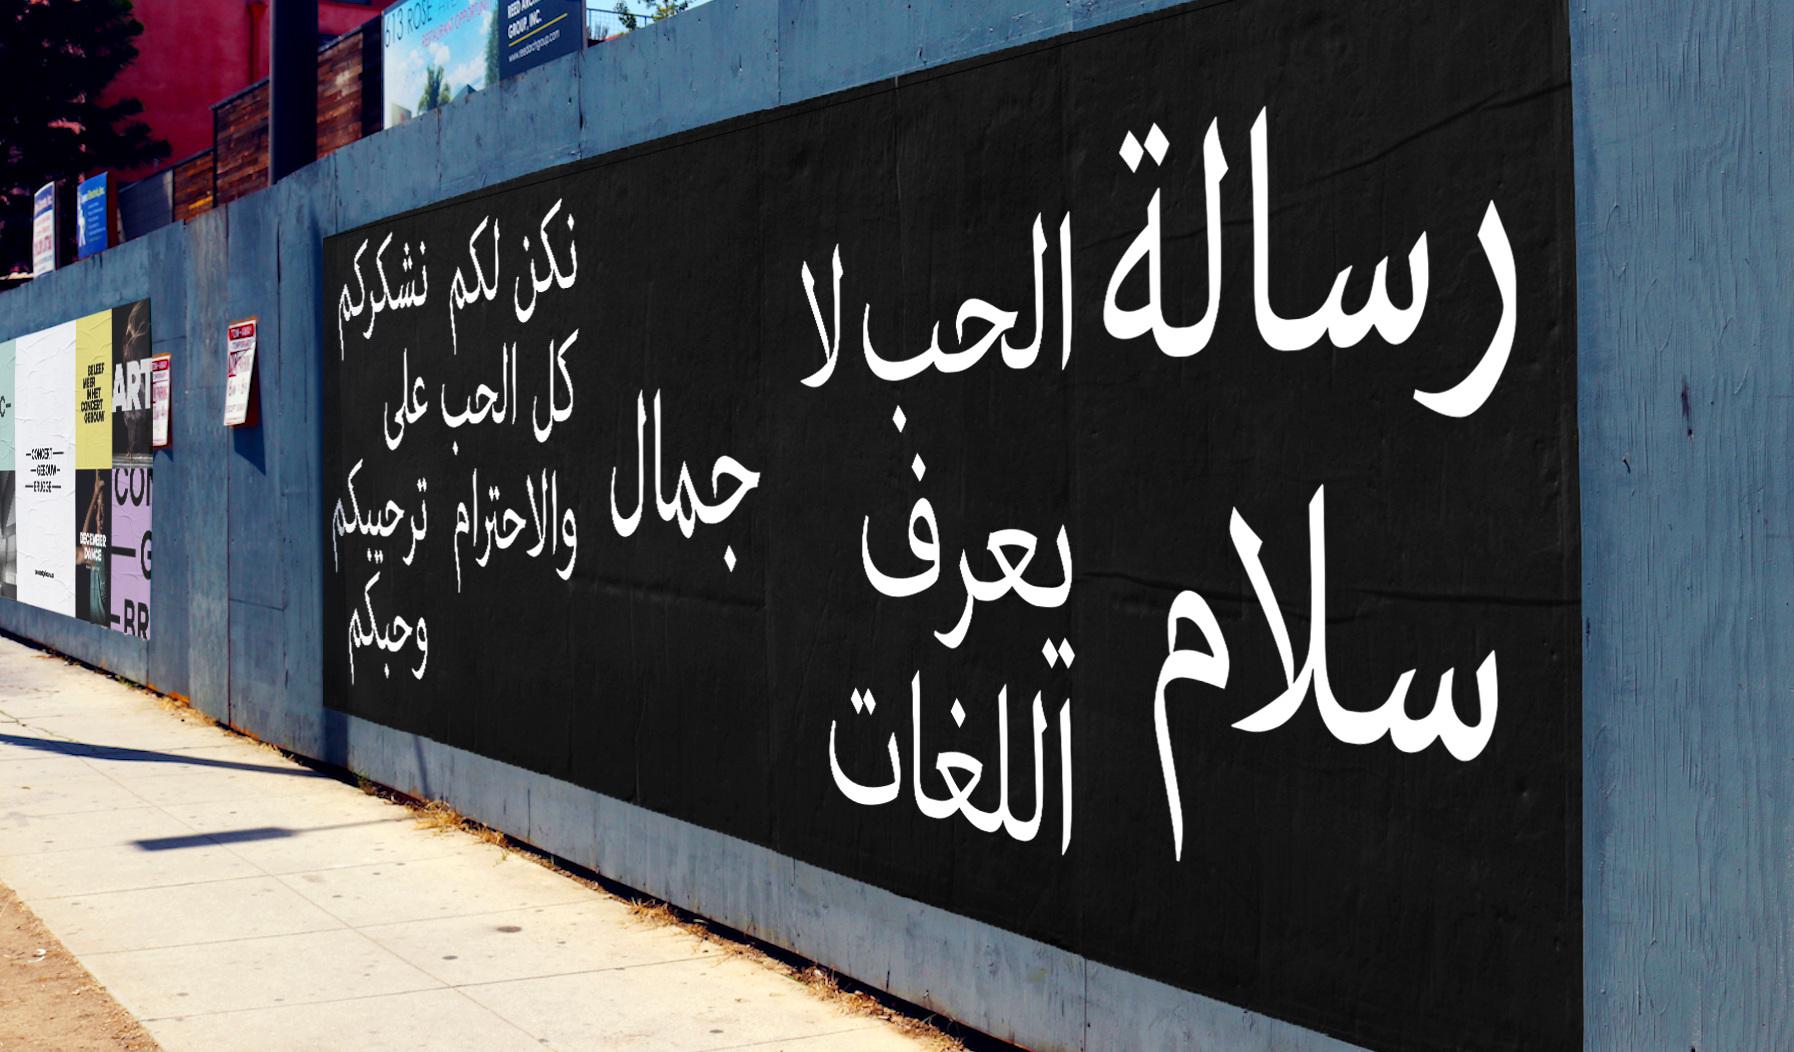 رسالة
سلام
الحب لا
يعرف
اللغات
جمال
نكن لكم
كل الحب
والاحترام
نشكركم
على
ترحيبكم
وحبكم
613 ROSE
RESTAURANT OPPORTUNITY
GROUP, INC.
www.reedarchgroup.com
BELEEF
MEER
IN HET
CONCERT
GEBOUW
ART
—CONCERT
—GEBOUW—
BRUGGE—
DECEMBER
DANCE
CON
—G
—BR